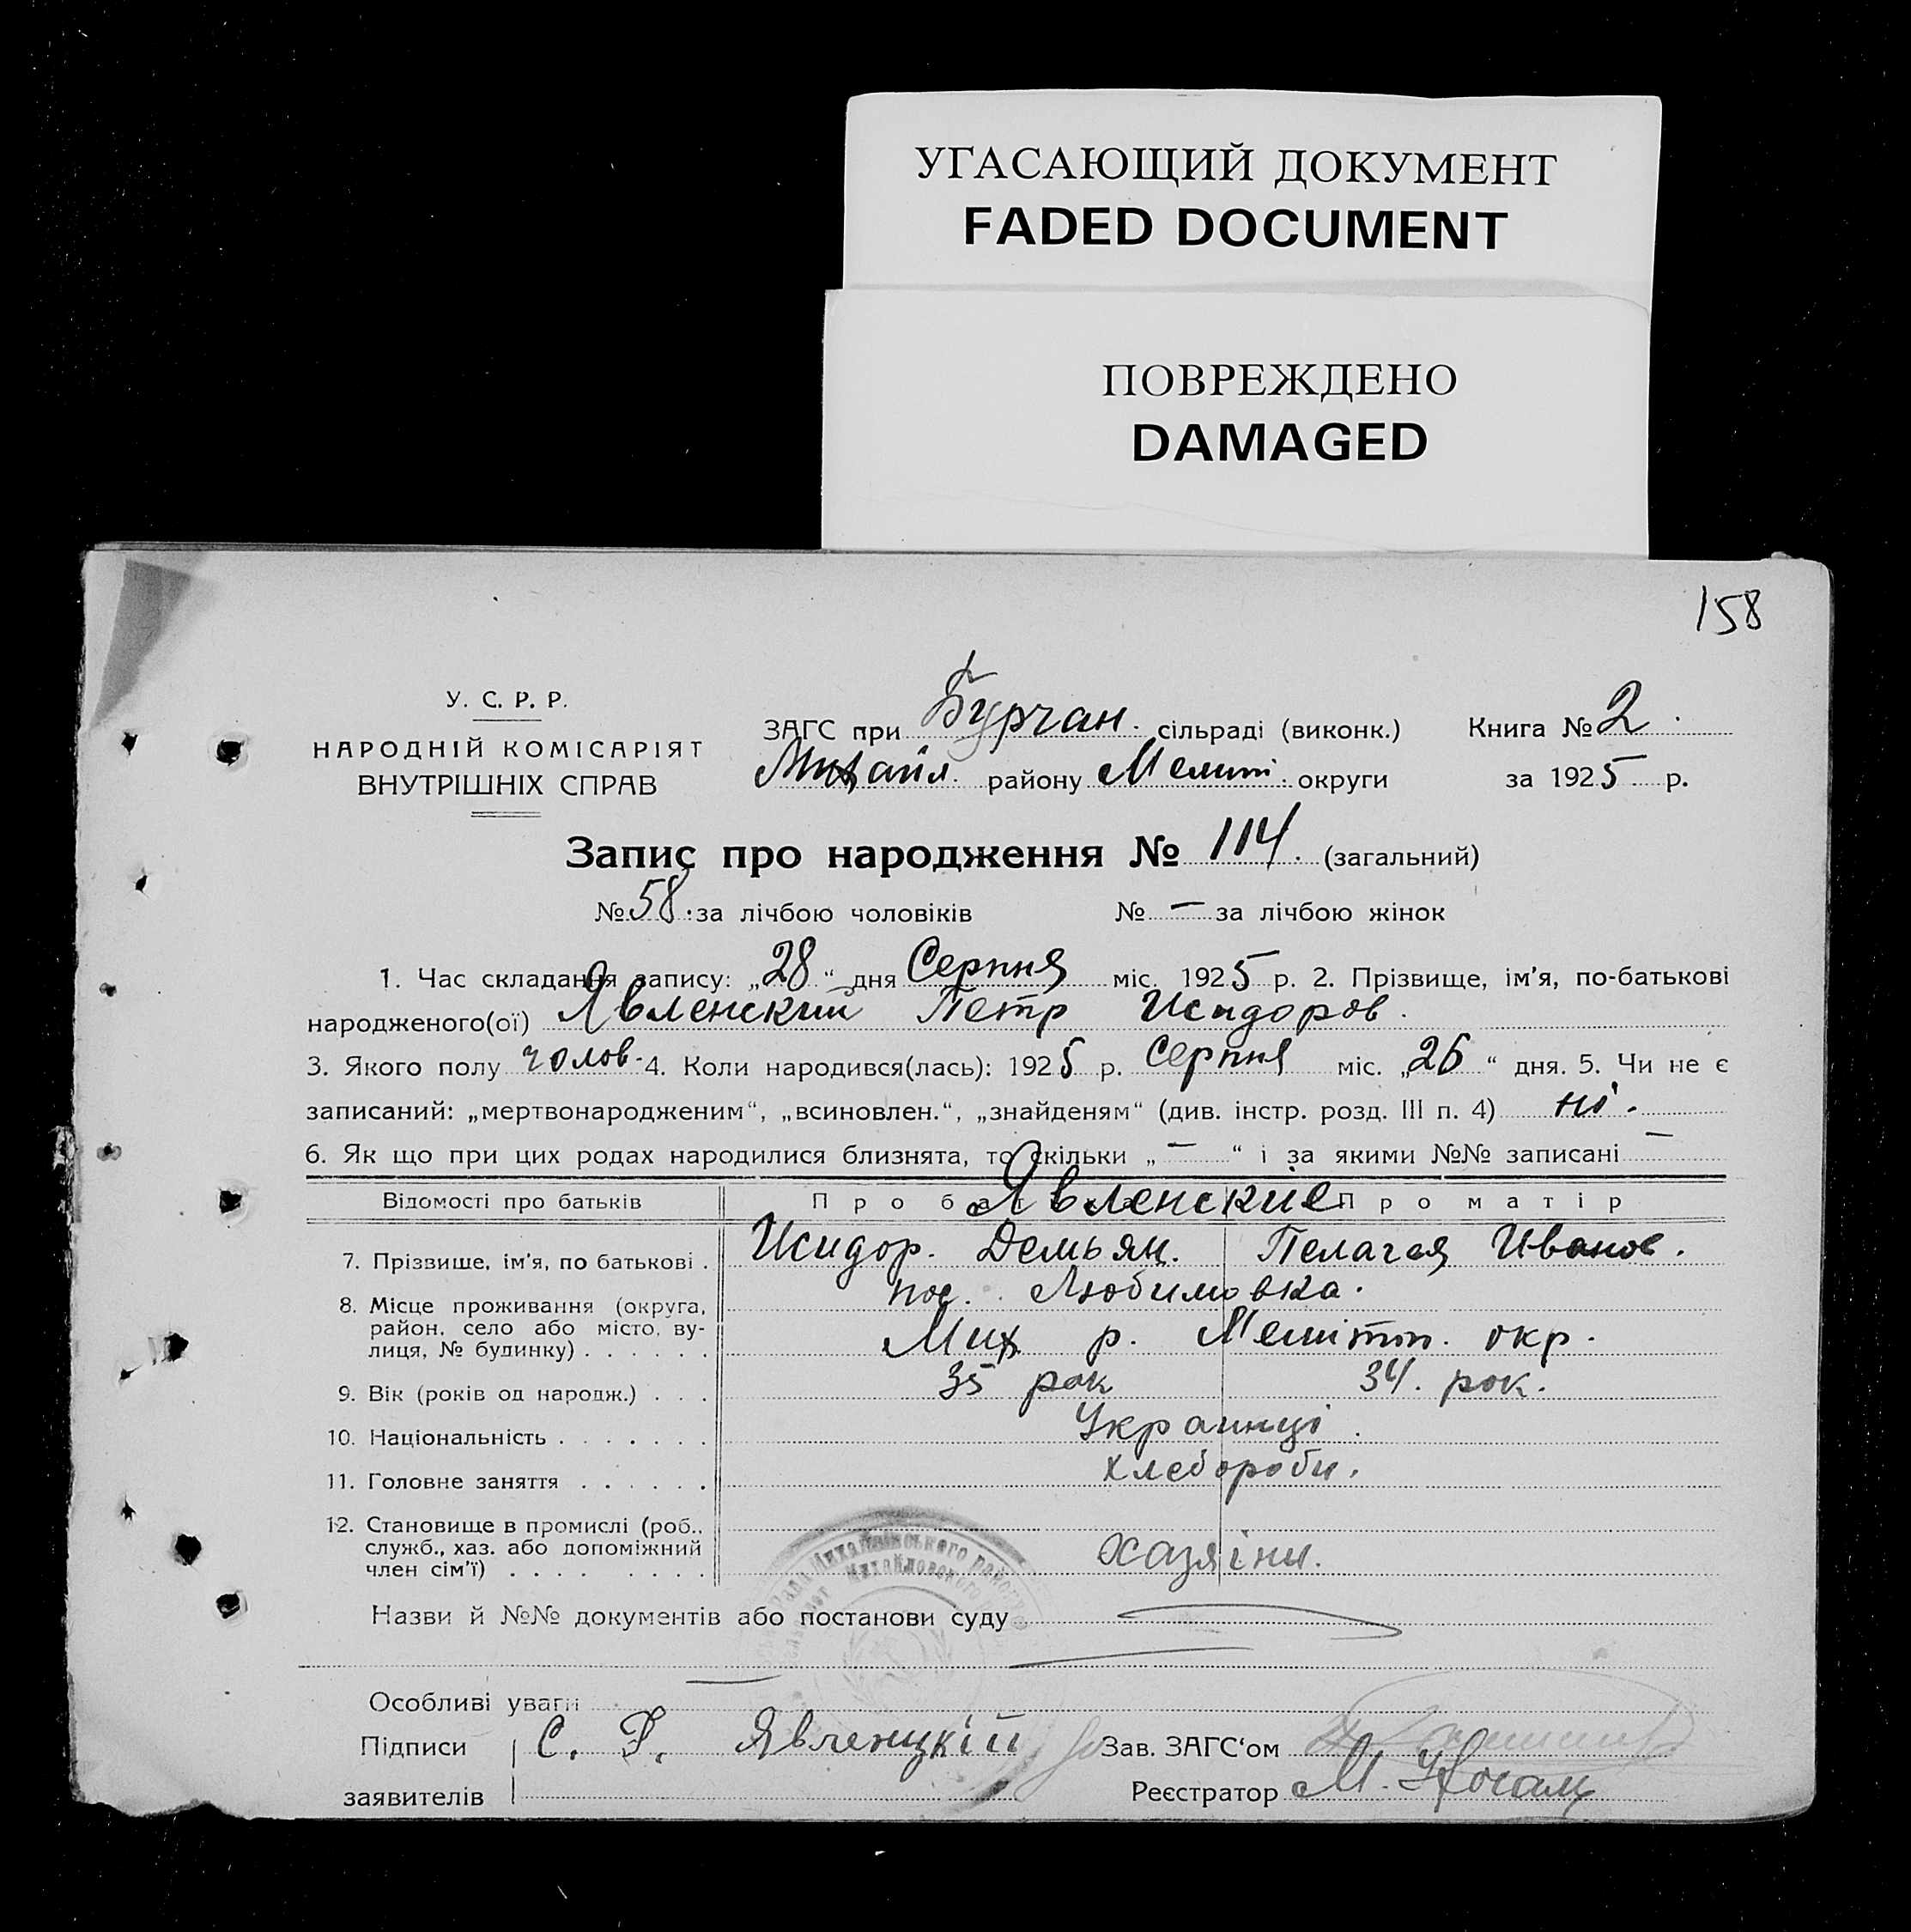 УГАСАЮЩИЙ ДОКУМЕНТ
FADED DOCUMENT
ПОВРЕЖДЕНО
DAMAGED
158
У. С. Р. Р.
НАРОДНІЙ КОМІСАРІЯТ
ВНУТРІШНІХ СПРАВ
ЗАГС при Бурчан. сільраді (виконк.) Книга № 2
Михайл. району Меліт. округи за 1925 р.
Запис про народження № 114. (загальний)
№ 58. за лічбою чоловіків № — за лічбою жінок
1. Час складання запису: „28“ дня Серпня міс. 1925 р. 2. Прізвище, ім'я, по-батькові
народженого(ої) Явленский Петр Исидоров.
3. Якого полу чолов. 4. Коли народився(лась): 1925 р. Серпня міс. „26“ дня. 5. Чи не є
записаний: „мертвонародженим“, „всиновлен.“, „знайденям“ (див. інстр. розд. III п. 4) ні.
6. Як що при цих родах народилися близнята, то скільки „—“ і за якими №№ записані —
Відомості про батьків Про ба Явленские Про матір
7. Прізвище, ім'я, по батькові . Исидор. Демьян. Пелагея Иванов.
8. Місце проживання (округа, пос. Любимовка.
район, село або місто, ву-
лиця, № будинку) . . . . . . Мих р. Мелітоп. окр.
9. Вік (років од народж.) . . . 35 рок 34. рок.
10. Національність . . . . . . . Украинці.
11. Головне заняття . . . . . . Хлебороби.
12. Становище в промислі (роб.,
служб., хаз. або допоміжний
член сім'ї) . . . . . . . . . Хазяіни.
Михайлівського району
Михайловского
Назви й №№ документів або постанови суду
Особливі уваги
Підписи С. Явленцкій Зав. ЗАГС'ом
заявителів Реєстратор М.